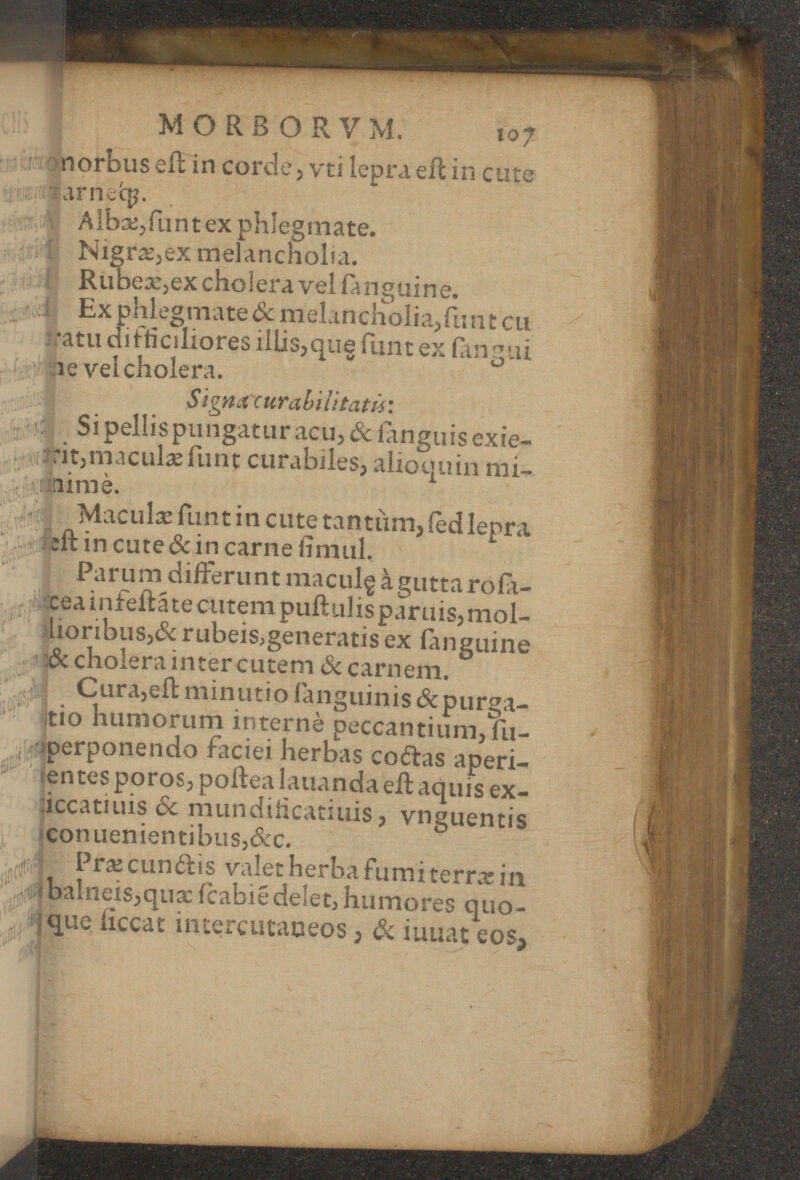 MORBORVM. 107
morbus eſt in corde, vti lepra eſt in cute
carneq́;.
Albæ, ſunt ex phlegmate.
Nigræ, ex melancholia.
Rubeæ, ex cholera vel ſanguine.
Ex phlegmate & melancholia, ſunt cu
ratu difficiliores illis, quę ſunt ex ſangui
ne vel cholera.
Signa curabilitatis:
Si pellis pungatur acu, & ſanguis exie-
rit, maculæ ſunt curabiles, alioquin mi-
nimè.
Maculæ ſunt in cute tantùm, ſed lepra
eſt in cute & in carne ſimul.
Parum differunt maculę à gutta roſa-
cea infeſtāte cutem puſtulis paruis, mol-
lioribus, & rubeis, generatis ex ſanguine
& cholera inter cutem & carnem.
Cura, eſt minutio ſanguinis & purga-
tio humorum internè peccantium, ſu-
perponendo faciei herbas coctas aperi-
entes poros, poſtea lauanda eſt aquis ex-
iccatiuis & mundificatiuis, vnguentis
conuenientibus, &c.
Præ cunctis valet herba fumiterræ in
balneis, quæ ſcabiē delet, humores quo-
que ſiccat intercutaneos, & iuuat eos,